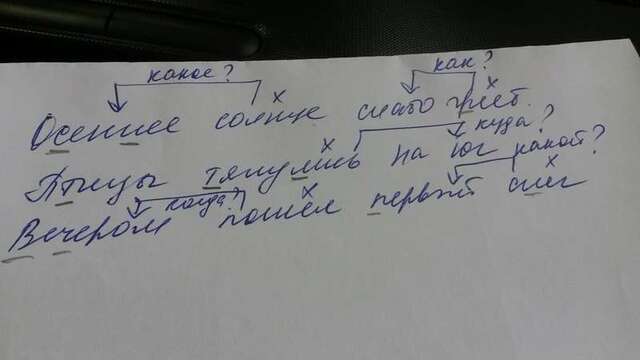 какое? как?
Осеннее солнце слабо греет.
куда?
Птицы тянулись на юг какой?
когда?
Вечером пошёл первый снег